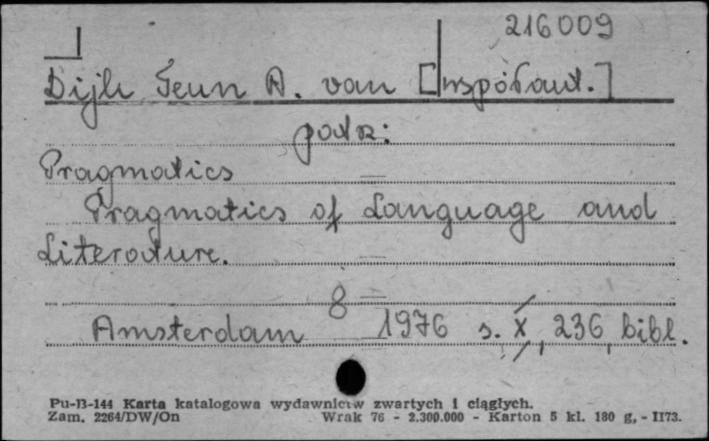 216009
Dijk Teun A. van [współaut.]
patrz:
Pragmatics
Pragmatics of Language and
Literature.
8
Amsterdam 1976 s. X, 236, bibl.
Pu-B-144 Karta katalogowa wydawnictw zwartych i ciągłych.
Zam. 2264/DW/On Wrak 76 - 2.300.000 - Karton 5 kl. 180 g. - II73.